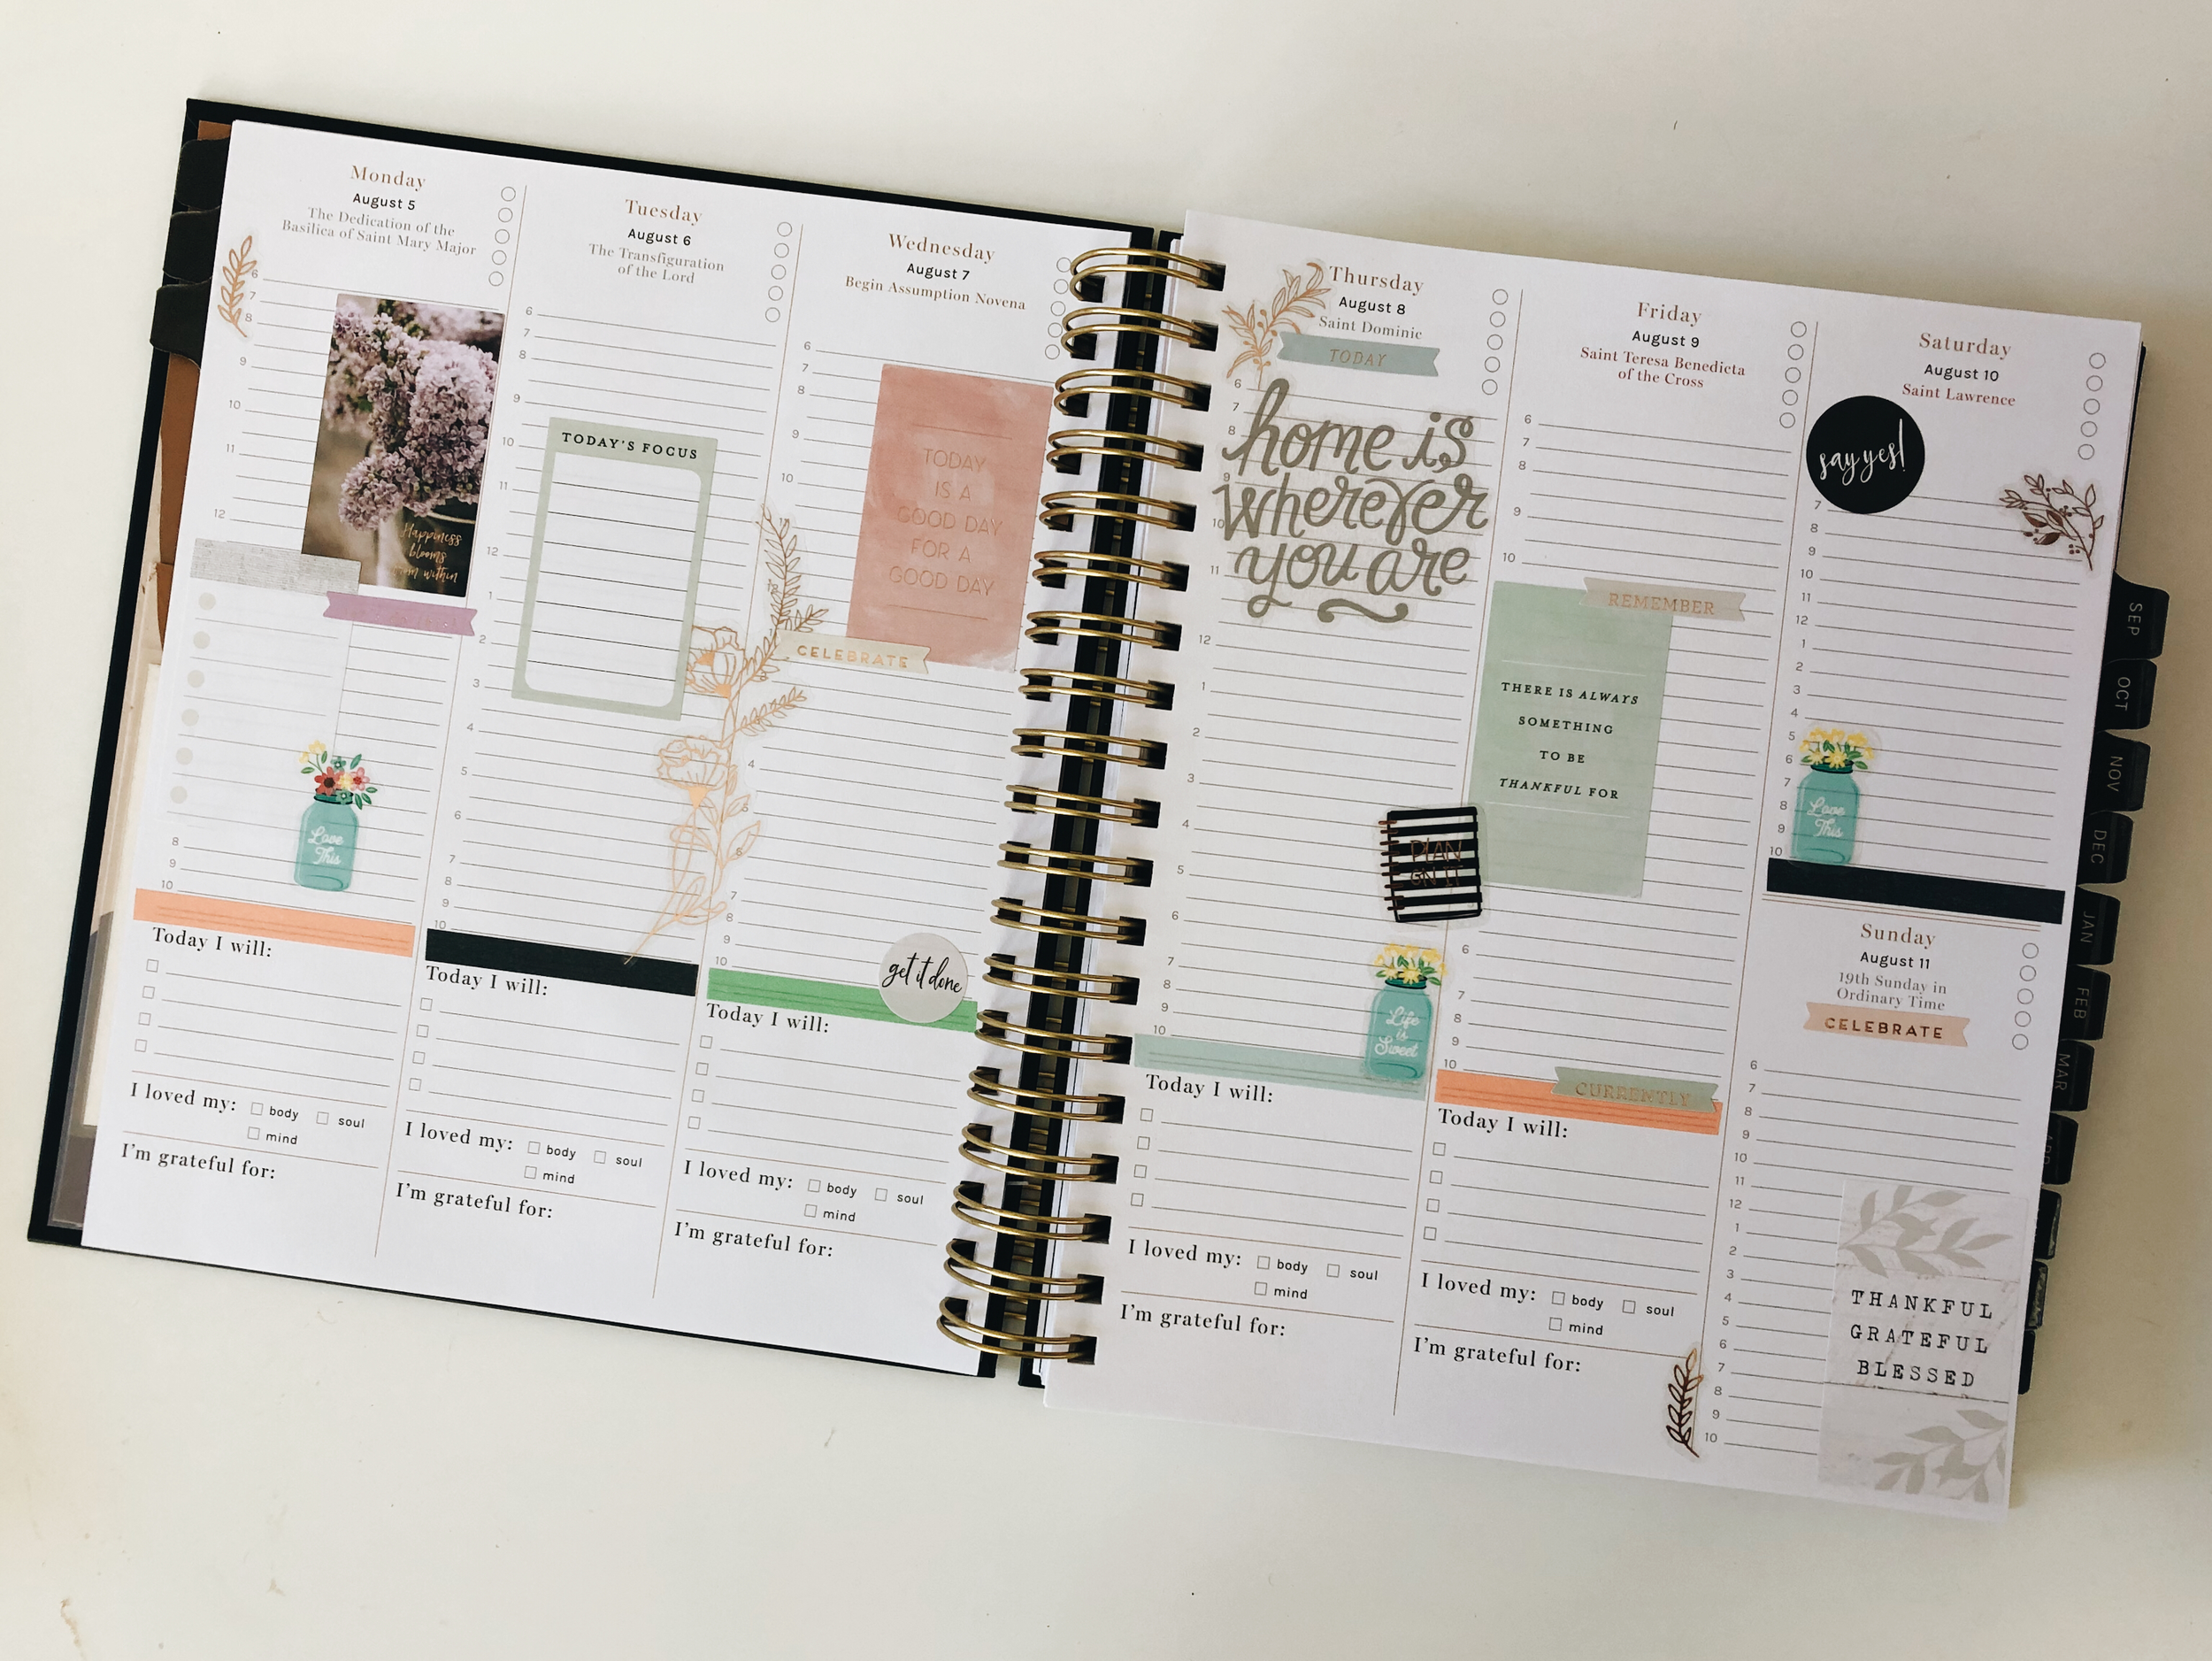 Monday
August 5
The Dedication of the
Basilica of Saint Mary Major
6
7
8
9
10
11
12
Happiness
blooms
from within
Love
This
8
9
10
Today I will:
I loved my: body soul
mind
I'm grateful for:
Tuesday
August 6
The Transfiguration
of the Lord
6
7
8
9
10
11
12
1
2
3
4
5
6
7
8
9
10
TODAY'S FOCUS
Today I will:
I loved my: body soul
mind
I'm grateful for:
Wednesday
August 7
Begin Assumption Novena
6
7
8
9
10
TODAY
IS A
GOOD DAY
FOR A
GOOD DAY
CELEBRATE
4
5
6
7
8
9
10
get it done
Today I will:
I loved my: body soul
mind
I'm grateful for:
Thursday
August 8
Saint Dominic
TODAY
6
7
8
9
10
11
12
1
2
3
4
5
6
7
8
9
10
home is
wherever
you are
PLAN
ON IT
Life
is
Sweet
Today I will:
I loved my: body soul
mind
I'm grateful for:
Friday
August 9
Saint Teresa Benedicta
of the Cross
6
7
8
9
10
REMEMBER
THERE IS ALWAYS
SOMETHING
TO BE
THANKFUL FOR
6
7
8
9
10
CURRENTLY
Today I will:
I loved my: body soul
mind
I'm grateful for:
Saturday
August 10
Saint Lawrence
say yes!
7
8
9
10
11
12
1
2
3
4
5
6
7
8
9
10
Love
This
Sunday
August 11
19th Sunday in
Ordinary Time
CELEBRATE
6
7
8
9
10
11
12
1
2
3
4
5
6
7
8
9
10
THANKFUL
GRATEFUL
BLESSED
SEP
OCT
NOV
DEC
JAN
FEB
MAR
APR